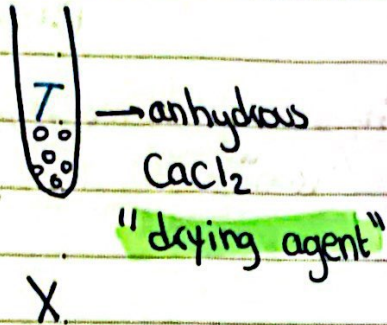 T
→ anhydrous
CaCl2
"drying agent"
X